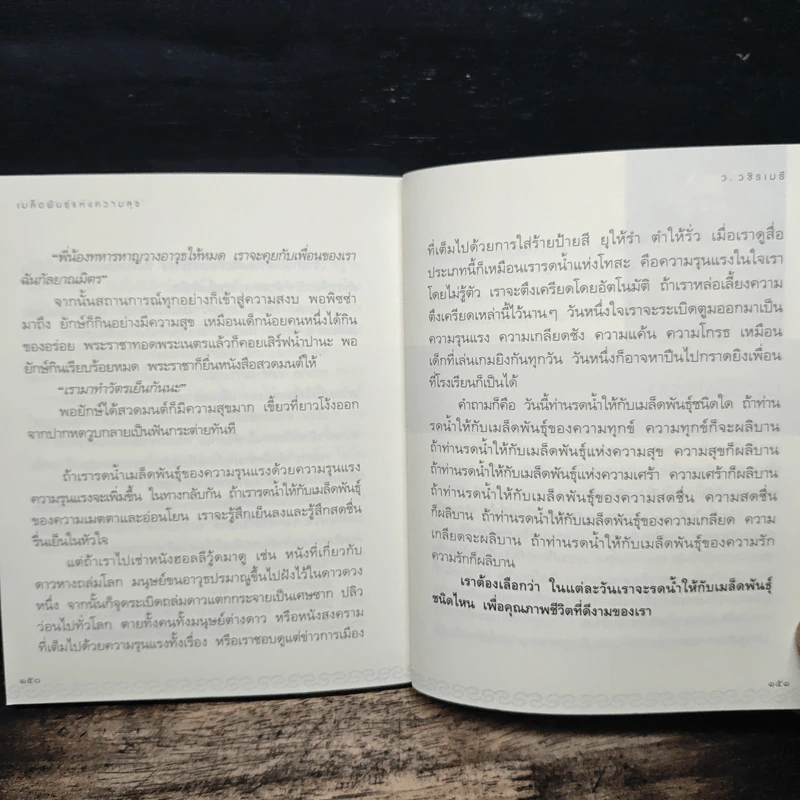 เมล็ดพันธุ์แห่งความสุข
"พี่น้องทหารหาญวางอาวุธให้หมด เราจะคุยกับเพื่อนของเรา
ฉันกัลยาณมิตร"
จากนั้นสถานการณ์ทุกอย่างก็เข้าสู่ความสงบ พอพิซซ่า
มาถึง ยักษ์ก็กินอย่างมีความสุข เหมือนเด็กน้อยคนหนึ่งได้กิน
ของอร่อย พระราชาทอดพระเนตรแล้วก็คอยเสิร์ฟน้ำปานะ พอ
ยักษ์กินเรียบร้อยหมด พระราชาก็ยื่นหนังสือสวดมนต์ให้
"เรามาทำวัตรเย็นกันนะ"
พอยักษ์ได้สวดมนต์ก็มีความสุขมาก เขี้ยวที่ยาวโง้งออก
จากปากหดวูบกลายเป็นฟันกระต่ายทันที
ถ้าเรารดน้ำเมล็ดพันธุ์ของความรุนแรงด้วยความรุนแรง
ความรุนแรงจะเพิ่มขึ้น ในทางกลับกัน ถ้าเรารดน้ำให้กับเมล็ดพันธุ์
ของความเมตตาและอ่อนโยน เราจะรู้สึกเย็นลงและรู้สึกสดชื่น
รื่นเย็นในหัวใจ
แต่ถ้าเราไปเช่าหนังฮอลลีวู้ดมาดู เช่น หนังที่เกี่ยวกับ
ดาวหางถล่มโลก มนุษย์ขนอาวุธปรมาณูขึ้นไปฝังไว้ในดาวดวง
หนึ่ง จากนั้นก็จุดระเบิดถล่มดาวแตกกระจายเป็นเศษซาก ปลิว
ว่อนไปทั่วโลก ตายทั้งคนทั้งมนุษย์ต่างดาว หรือหนังสงคราม
ที่เต็มไปด้วยความรุนแรงทั้งเรื่อง หรือเราชอบดูแต่ข่าวการเมือง
๑๕๐
ว.วชิรเมธี
ที่เต็มไปด้วยการใส่ร้ายป้ายสี ยุให้รำ ตำให้รั่ว เมื่อเราดูสื่อ
ประเภทนี้ก็เหมือนเรารดน้ำแห่งโทสะ คือความรุนแรงในใจเรา
โดยไม่รู้ตัว เราจะตึงเครียดโดยอัตโนมัติ ถ้าเราหล่อเลี้ยงความ
ตึงเครียดเหล่านี้ไว้นานๆ วันหนึ่งใจเราจะระเบิดตูมออกมาเป็น
ความรุนแรง ความเกลียดชัง ความแค้น ความโกรธ เหมือน
เด็กที่เล่นเกมยิงกันทุกวัน วันหนึ่งก็อาจหาปืนไปกราดยิงเพื่อน
ที่โรงเรียนก็เป็นได้
คำถามก็คือ วันนี้ท่านรดน้ำให้กับเมล็ดพันธุ์ชนิดใด ถ้าท่าน
รดน้ำให้กับเมล็ดพันธุ์ของความทุกข์ ความทุกข์ก็จะผลิบาน
ถ้าท่านรดน้ำให้กับเมล็ดพันธุ์แห่งความสุข ความสุขก็ผลิบาน
ถ้าท่านรดน้ำให้กับเมล็ดพันธุ์แห่งความเศร้า ความเศร้าก็ผลิบาน
ถ้าท่านรดน้ำให้กับเมล็ดพันธุ์ของความสดชื่น ความสดชื่น
ก็ผลิบาน ถ้าท่านรดน้ำให้กับเมล็ดพันธุ์ของความเกลียด ความ
เกลียดจะผลิบาน ถ้าท่านรดน้ำให้กับเมล็ดพันธุ์ของความรัก
ความรักก็ผลิบาน
เราต้องเลือกว่า ในแต่ละวันเราจะรดน้ำให้กับเมล็ดพันธุ์
ชนิดไหน เพื่อคุณภาพชีวิตที่ดีงามของเรา
๑๕๑